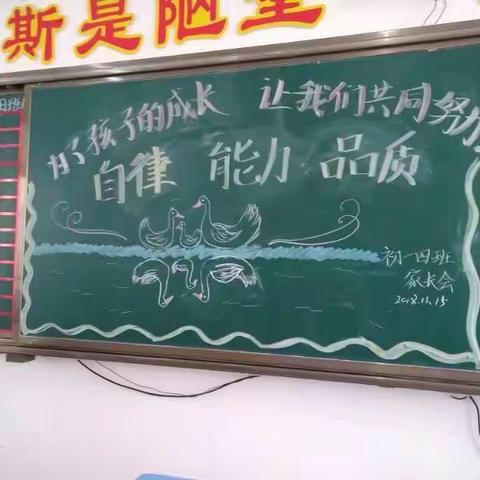 斯是陋室
为了孩子的成长 让我们共同努力
自律 能力 品质
初一四班
家长会
2018.11.15